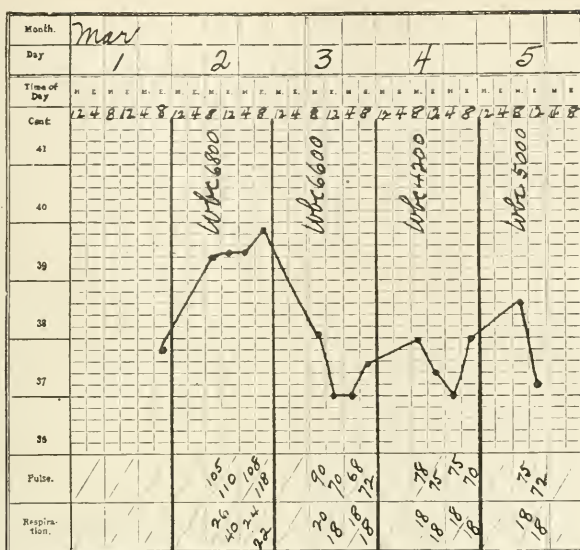 Month. Mar
Day 1 2 3 4 5
Time of Day M. E. M. E. M. E. M. E. M. E.
Cent. 12 4 8 12 4 8 12 4 8 12 4 8 12 4 8 12 4 8 12 4 8 12 4 8 12 4 8 12 4 8
41
Wbc 6800 Wbc 6600 Wbc 4200 Wbc 5000
40
39
38
37
36
Pulse. 105 110 108 118 90 70 68 72 78 75 75 70 75 72
Respiration. 26 40 24 22 20 18 18 18 18 18 18 18 18 18